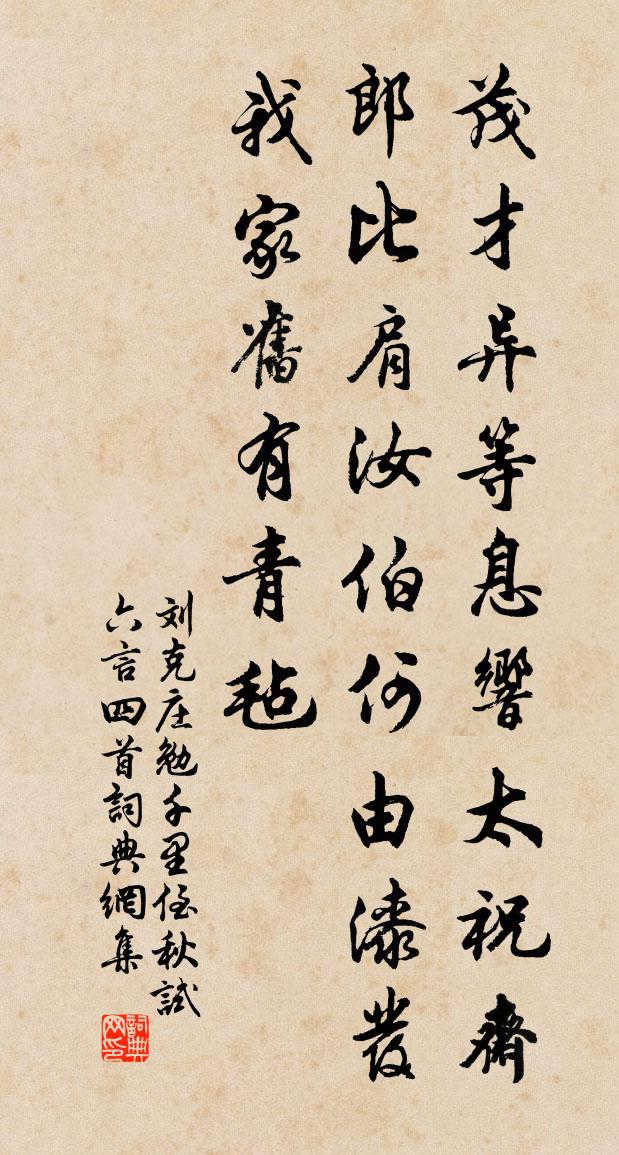 茂才异等息響太祝齋
郎比肩汝伯何由漆發
我家舊有青毡
刘克庄勉千里侄秋試
六言四首詞典網集
詞典网印